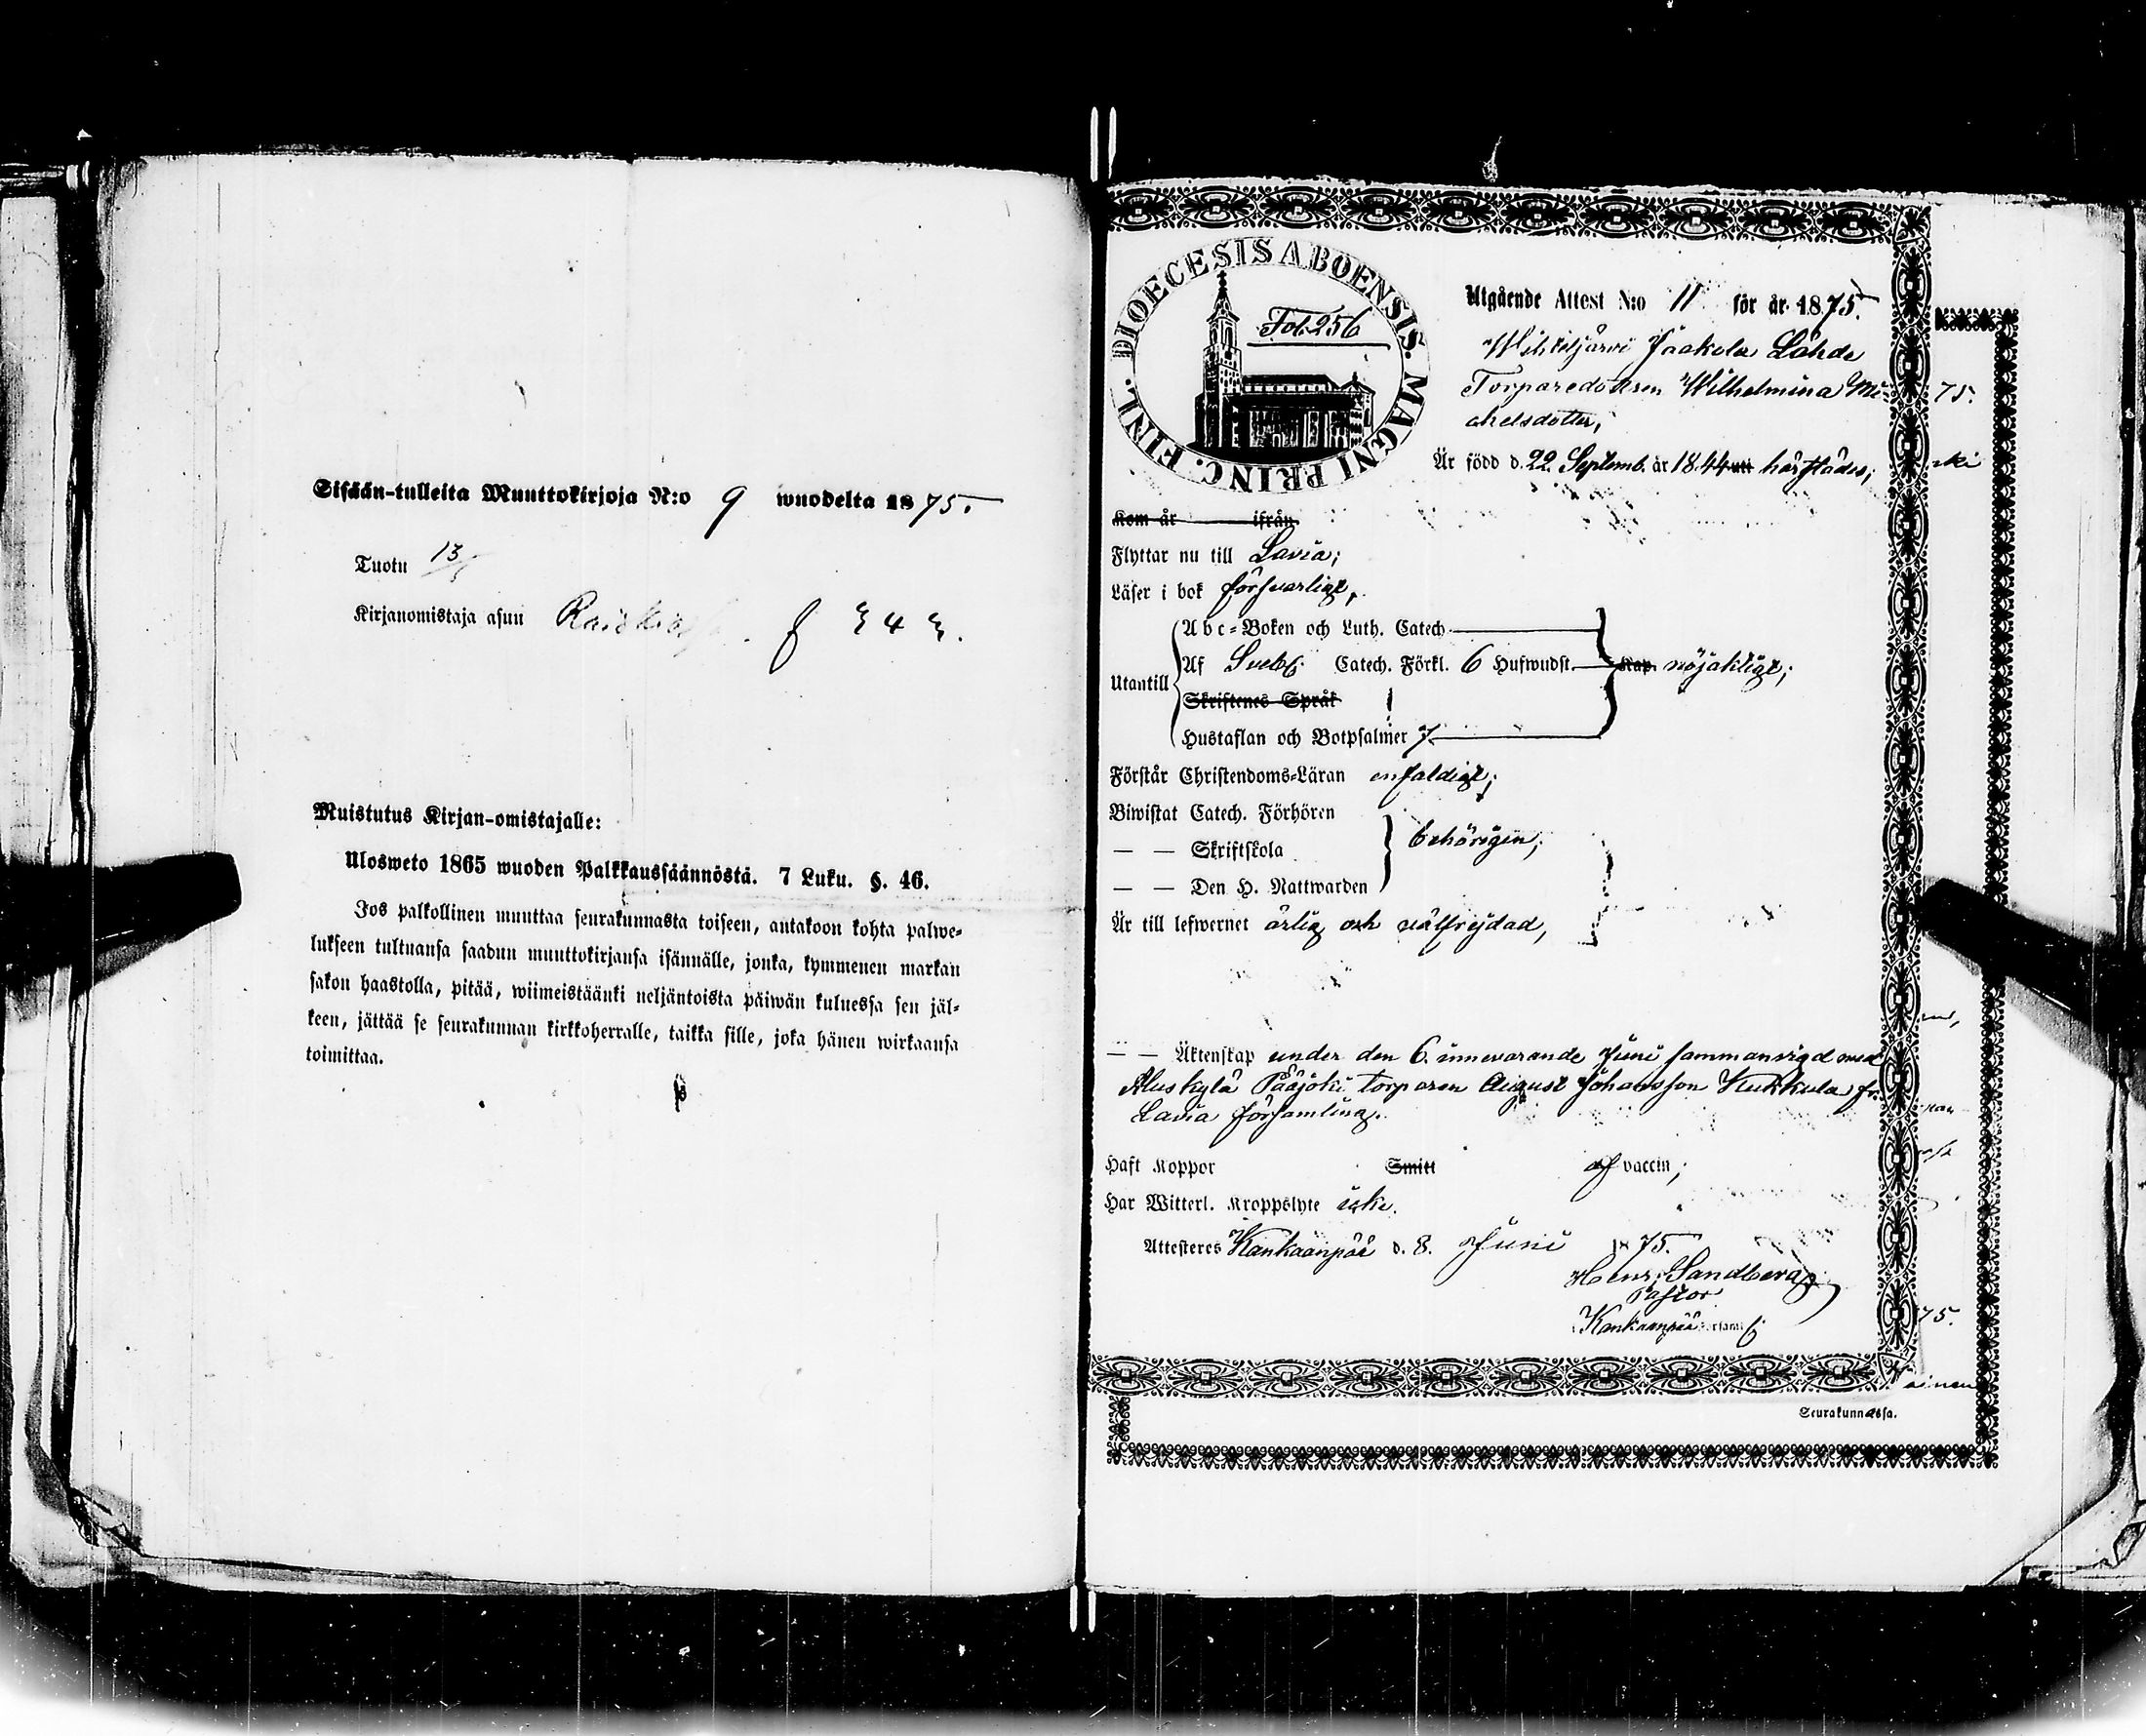 Sisään-tulleita Muuttokirjoja N:o 9 wuodelta 1875.
Tuotu 13/5
Kirjanomistaja asuu f 343.
Muistutus Kirjan-omistajalle:
Ulosweto 1865 wuoden Palkkaussäännöstä. 7 Luku. §. 46.
Jos palkollinen muuttaa seurakunnasta toiseen, antakoon kohta palwe-
lukseen tultuansa saadun muuttokirjansa isännälle, jonka, kymmenen markan
sakon haastolla, pitää, wiimeistäänki neljäntoista päiwän kuluessa sen jäl-
keen, jättää se seurakunnan kirkkoherralle, taikka sille, joka hänen wirkaansa
toimittaa.
DIOECESIS ABOENSIS. MAGNI PRINC. FINL.
Fol. 256
Utgående Attest N:o 11 för år 1875.
Jaakola Lähde
Torparedottren Wilhelmina Mi-
chelsdotter,
Är född d. 22 Septemb. år 1844 uti härstädes;
Kom år ifrån
Flyttar nu till Lavia;
Läser i bok försvarligt,
Utantill
Abc-Boken och Luth. Catech
Af Sveb. Catech. Förkl. 6 Hufwudst. Kap. nöjaktigt;
Skriftenes Språk
Hustaflan och Botpsalmer 7.
Förstår Christendoms-Läran enfaldigt;
Biwistat Catech. Förhören
— — Skriftskola behörigen;
— — Den H. Nattwarden
Är till lefwernet ärlig och välfrejdad,
— — Äktenskap under den 6. innevarande Juni sammanvigd med
Pääjoki torparen August Johansson Kukkula fr.
Lavia församling.
Haft Koppor Smitt af vaccin;
Har Witterl. Kroppslyte icke.
Attesteres Kankaanpää d. 8. Juni 1875.
Henr. Sandberg
Pastor
Kankaanpää
75.
ski
75.
ainen
Seurakunnassa.